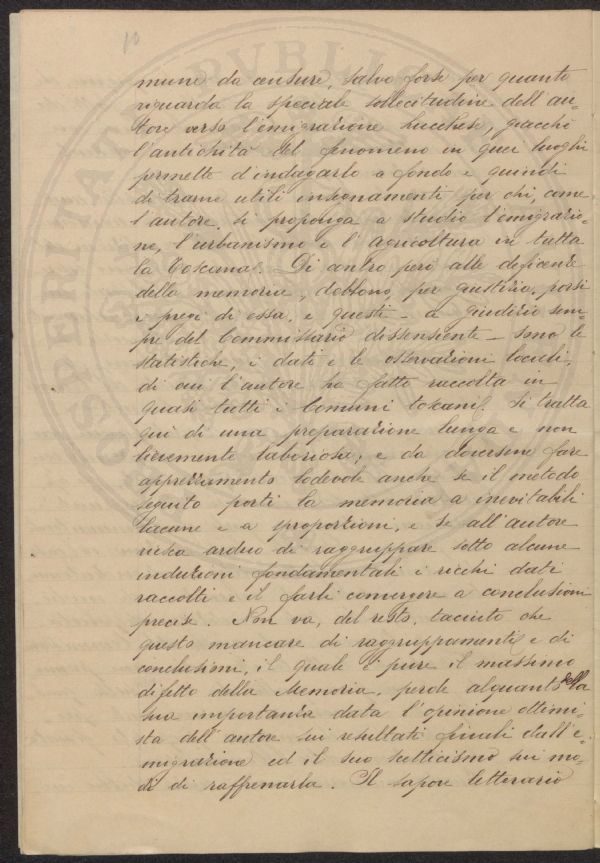 10
mune da censure, salvo forse per quanto
riguarda la speciale sollecitudine dell'au-
tore verso l'emigrazione lucchese, giacchè
l'antichità del fenomeno in quei luoghi
permette d'indagarlo a fondo e quindi
di trarne utili insegnamenti per chi, come
l'autore, si proponga a studio l'emigrazio-
ne, l'urbanismo e l'agricoltura in tutta
la Toscana. Di contro però alle deficenze
della memoria, debbono, per giustizia, porsi
i pregi di essa, e questi - a giudizio sem-
pre del Commissario dissenziente - sono le
statistiche, i dati e le osservazioni locali,
di cui l'autore ha fatto raccolta in
quasi tutti i Comuni toscani. Si tratta
qui di una preparazione lunga e non
lievemente laboriosa, e da doversene fare
apprezzamento lodevole anche se il metodo
seguito porti la memoria a inevitabili
lacune e a sproporzioni, e se all'autore
riesca arduo di raggruppare sotto alcune
induzioni fondamentali i ricchi dati
raccolti e il farli convergere a conclusioni
precise. Non va, del resto, taciuto che
questo mancare di raggruppamenti e di
conclusioni, il quale è pure il massimo
difetto della Memoria, perde alquanto della
sua importanza data l'opinione ottimi-
sta dell'autore sui resultati finali dall'e-
migrazione ed il suo scetticismo sui mo-
di di raffrenarla. Il sapore letterario